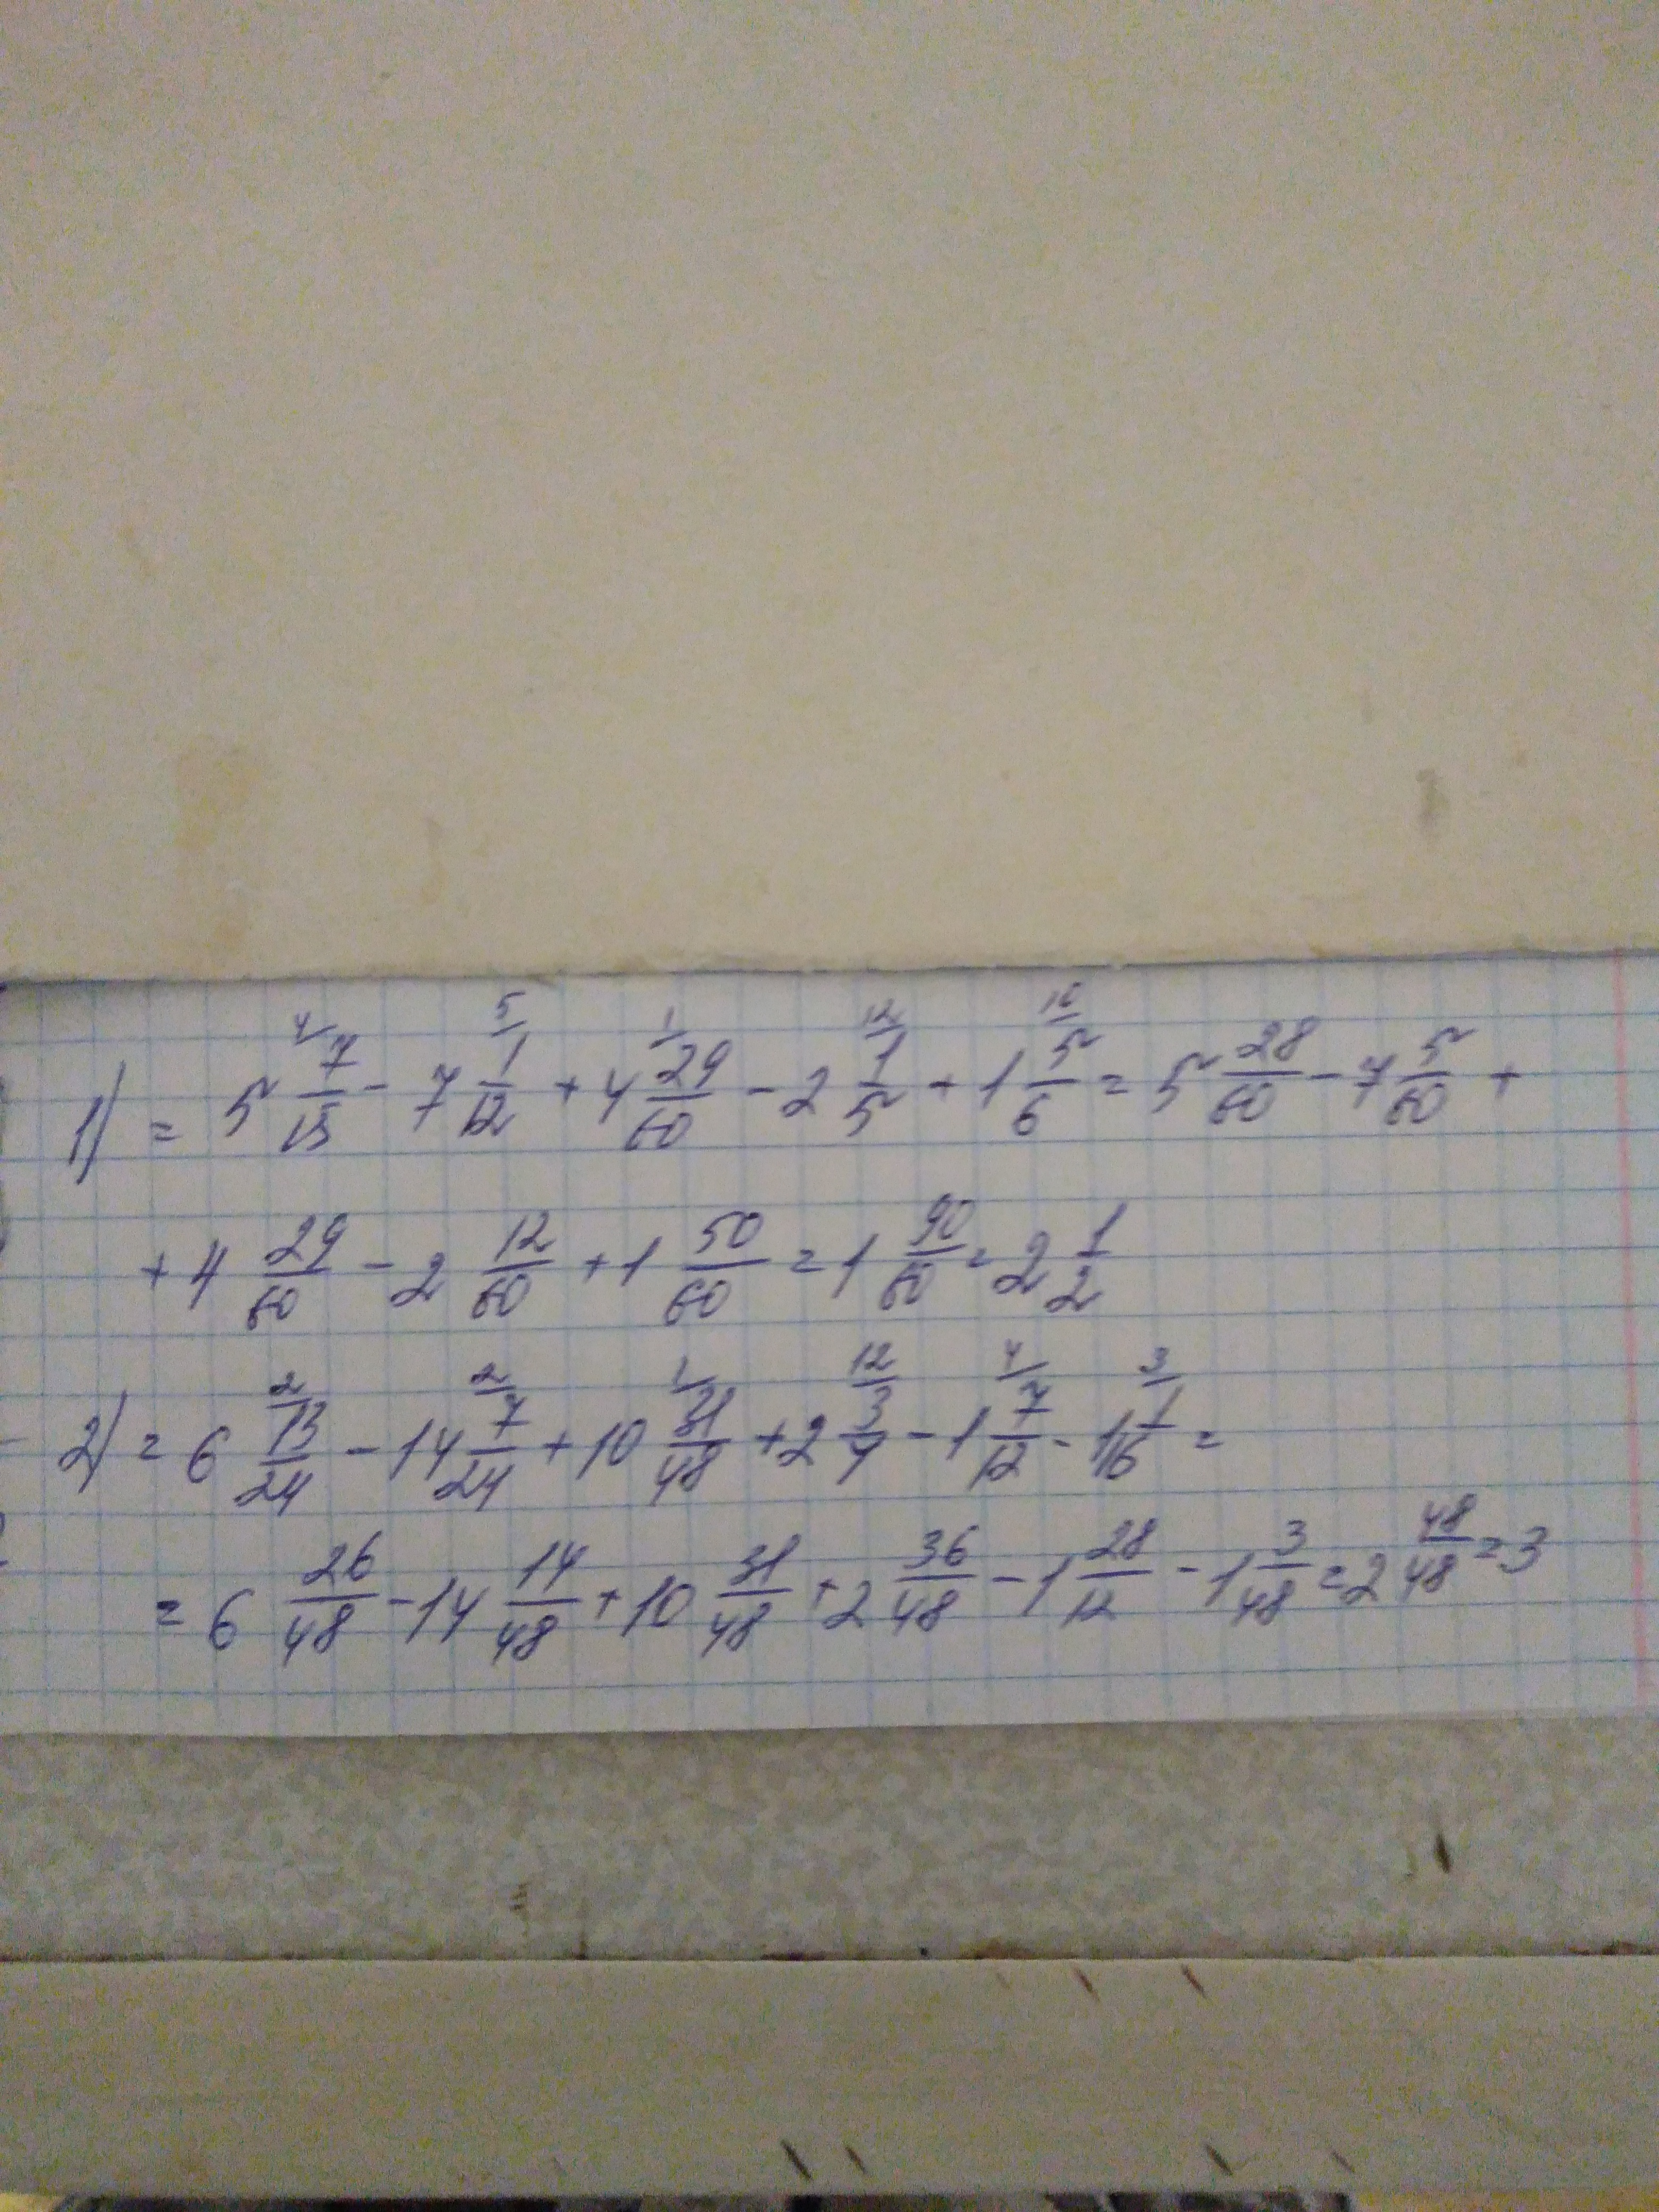 1) = 5 7/15 - 7 1/12 + 4 29/60 - 2 1/5 + 1 5/6 = 5 28/60 - 7 5/60 +
+ 4 29/60 - 2 12/60 + 1 50/60 = 1 90/60 = 2 1/2
2) = 6 13/24 - 14 7/24 + 10 31/48 + 2 3/4 - 1 7/12 - 1 1/16 =
= 6 26/48 - 14 14/48 + 10 31/48 + 2 36/48 - 1 28/12 - 1 3/48 = 2 48/48 = 3